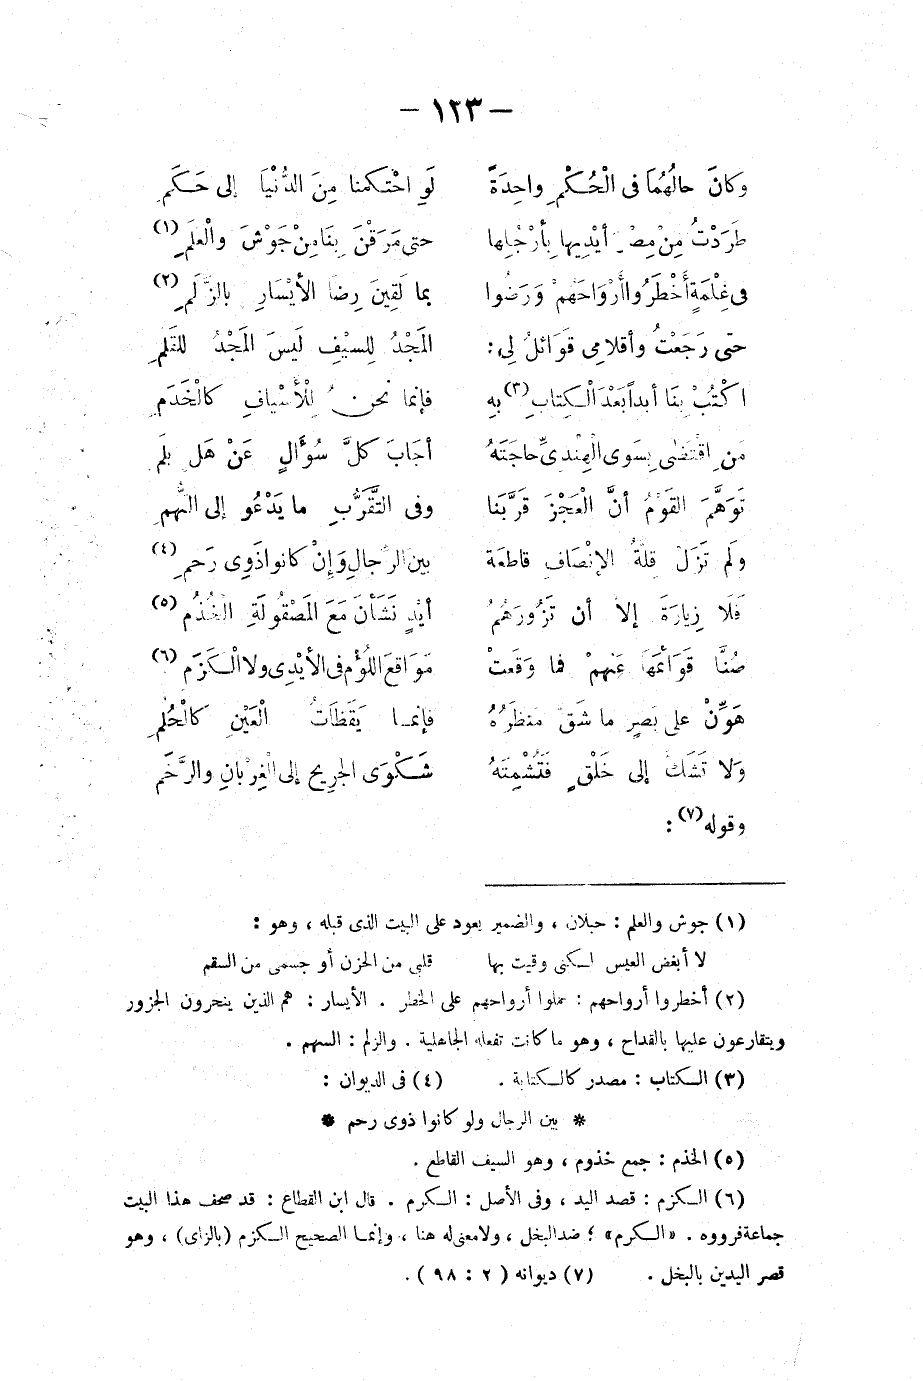 — ١٢٣ —
وكانَ حالهُمَا فى الْحُكْمِ واحِدَةً لَوِ احْتَكمنا مِنَ الدُّنْيَا إلى حَكَمِ
طَرَدْتُ مِنْ مِصْرَ أيْدِيها بِأرْجُلِها حتى مَرَقْنَ بِنَا مِنْ جَوْشَ والْعلَمِ (١)
فى غِلْمَةٍ أخْطَرُوا أرْوَاحَهُمْ وَرَضُوا بما لَقِينَ رِضَا الأيْسَارِ بالزَّلَمِ (٢)
حتى رَجَعْتُ وأقلامِى قَوَائلُ لِى: المَجْدُ لِلسيْفِ لَيسَ المَجْدُ للقلَمِ
اكْتُبْ بِنَا أبداً بَعْدَ الْكِتابِ (٣) بهِ فإنما نحنُ لِلْأسْيافِ كالْخَدَمِ
مَنِ اقْتَضٰى بِسِوَى الْهِنْدىِّ حاجَتَهُ أجابَ كلَّ سُؤَالٍ عَنْ هَل بِلَمِ
تَوَهَّمَ القَوْمُ أنَّ الْعَجْزَ قَرَّبَنَا وفى التَّقَرُّبِ ما يَدْعُو إلى التُّهمِ
ولَم تَزَلْ قِلةُ الإنْصَافِ قاطعَة بين الرِّجالِ وَإنْ كانوا ذَوِى رَحمِ (٤)
فَلَا زِيارَةَ إلاَّ أن تَزُورَهُمُ أيْدٍ نَشَأْنَ مَعَ المَصْقُولَةِ الْخُذُمِ (٥)
صُنَّا قَوَائمَها عَنهمْ فما وَقَعتْ مَوَاقعَ اللُّؤْمِ فى الأيْدِى ولا الْكَزَمِ (٦)
هَوِّنْ على بَصَرٍ ما شَقَّ منظَرُهُ فإنمـا يَقَظَاتُ الْعَيْنِ كالْحُلمِ
وَلا تَشَكَّ إلى خَلْقٍ فَتُشْمِتَهُ شَكْوَى الجَرِيحِ إلى الْغِرْبانِ والرَّخَمِ
وقوله (٧) :
(١) جوش والعلم : جبلان ، والضمير يعود على البيت الذى قبله ، وهو :
لا أبغض العيس لـكنى وقيت بها قلبى من الحزن أو جسمى من السقم
(٢) أخطروا أرواحهم : حملوا أرواحهم على الخطر . الأيسار : هم الذين ينحرون الجزور
ويتقارعون عليها بالقداح ، وهو ما كانت تفعله الجاهلية . والزلم : السهم .
(٣) الـكتاب : مصدر كالـكتابة . (٤) فى الديوان :
* بين الرجال ولو كانوا ذوى رحم *
(٥) الخذم : جمع خذوم ، وهو السيف القاطع .
(٦) الـكزم : قصد اليد ، وفى الأصل : الـكرم . قال ابن القطاع : قد صحف هذا البيت
جماعة فرووه . «الـكرم» ؛ ضد البخل ، ولا معنى له هنا ، وإنمـا الصحيح الـكزم (بالزاى) ، وهو
قصر اليدين بالبخل . (٧) ديوانه ( ٢ : ٩٨ ) .